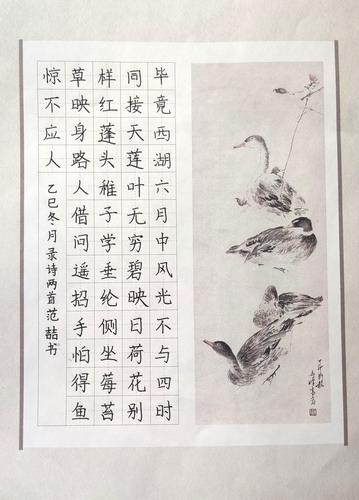 毕竟西湖六月中风光不与四时
同接天莲叶无穷碧映日荷花别
样红蓬头稚子学垂纶侧坐莓苔
草映身路人借问遥招手怕得鱼
惊不应人
乙巳冬月录诗两首范喆书